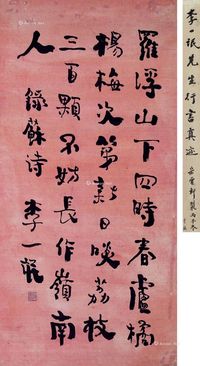 羅浮山下四時春盧橘
楊梅次第新日啖荔枝
三百顆不妨長作嶺南
人 錄蘇詩 李一氓
李一氓先生行書真迹